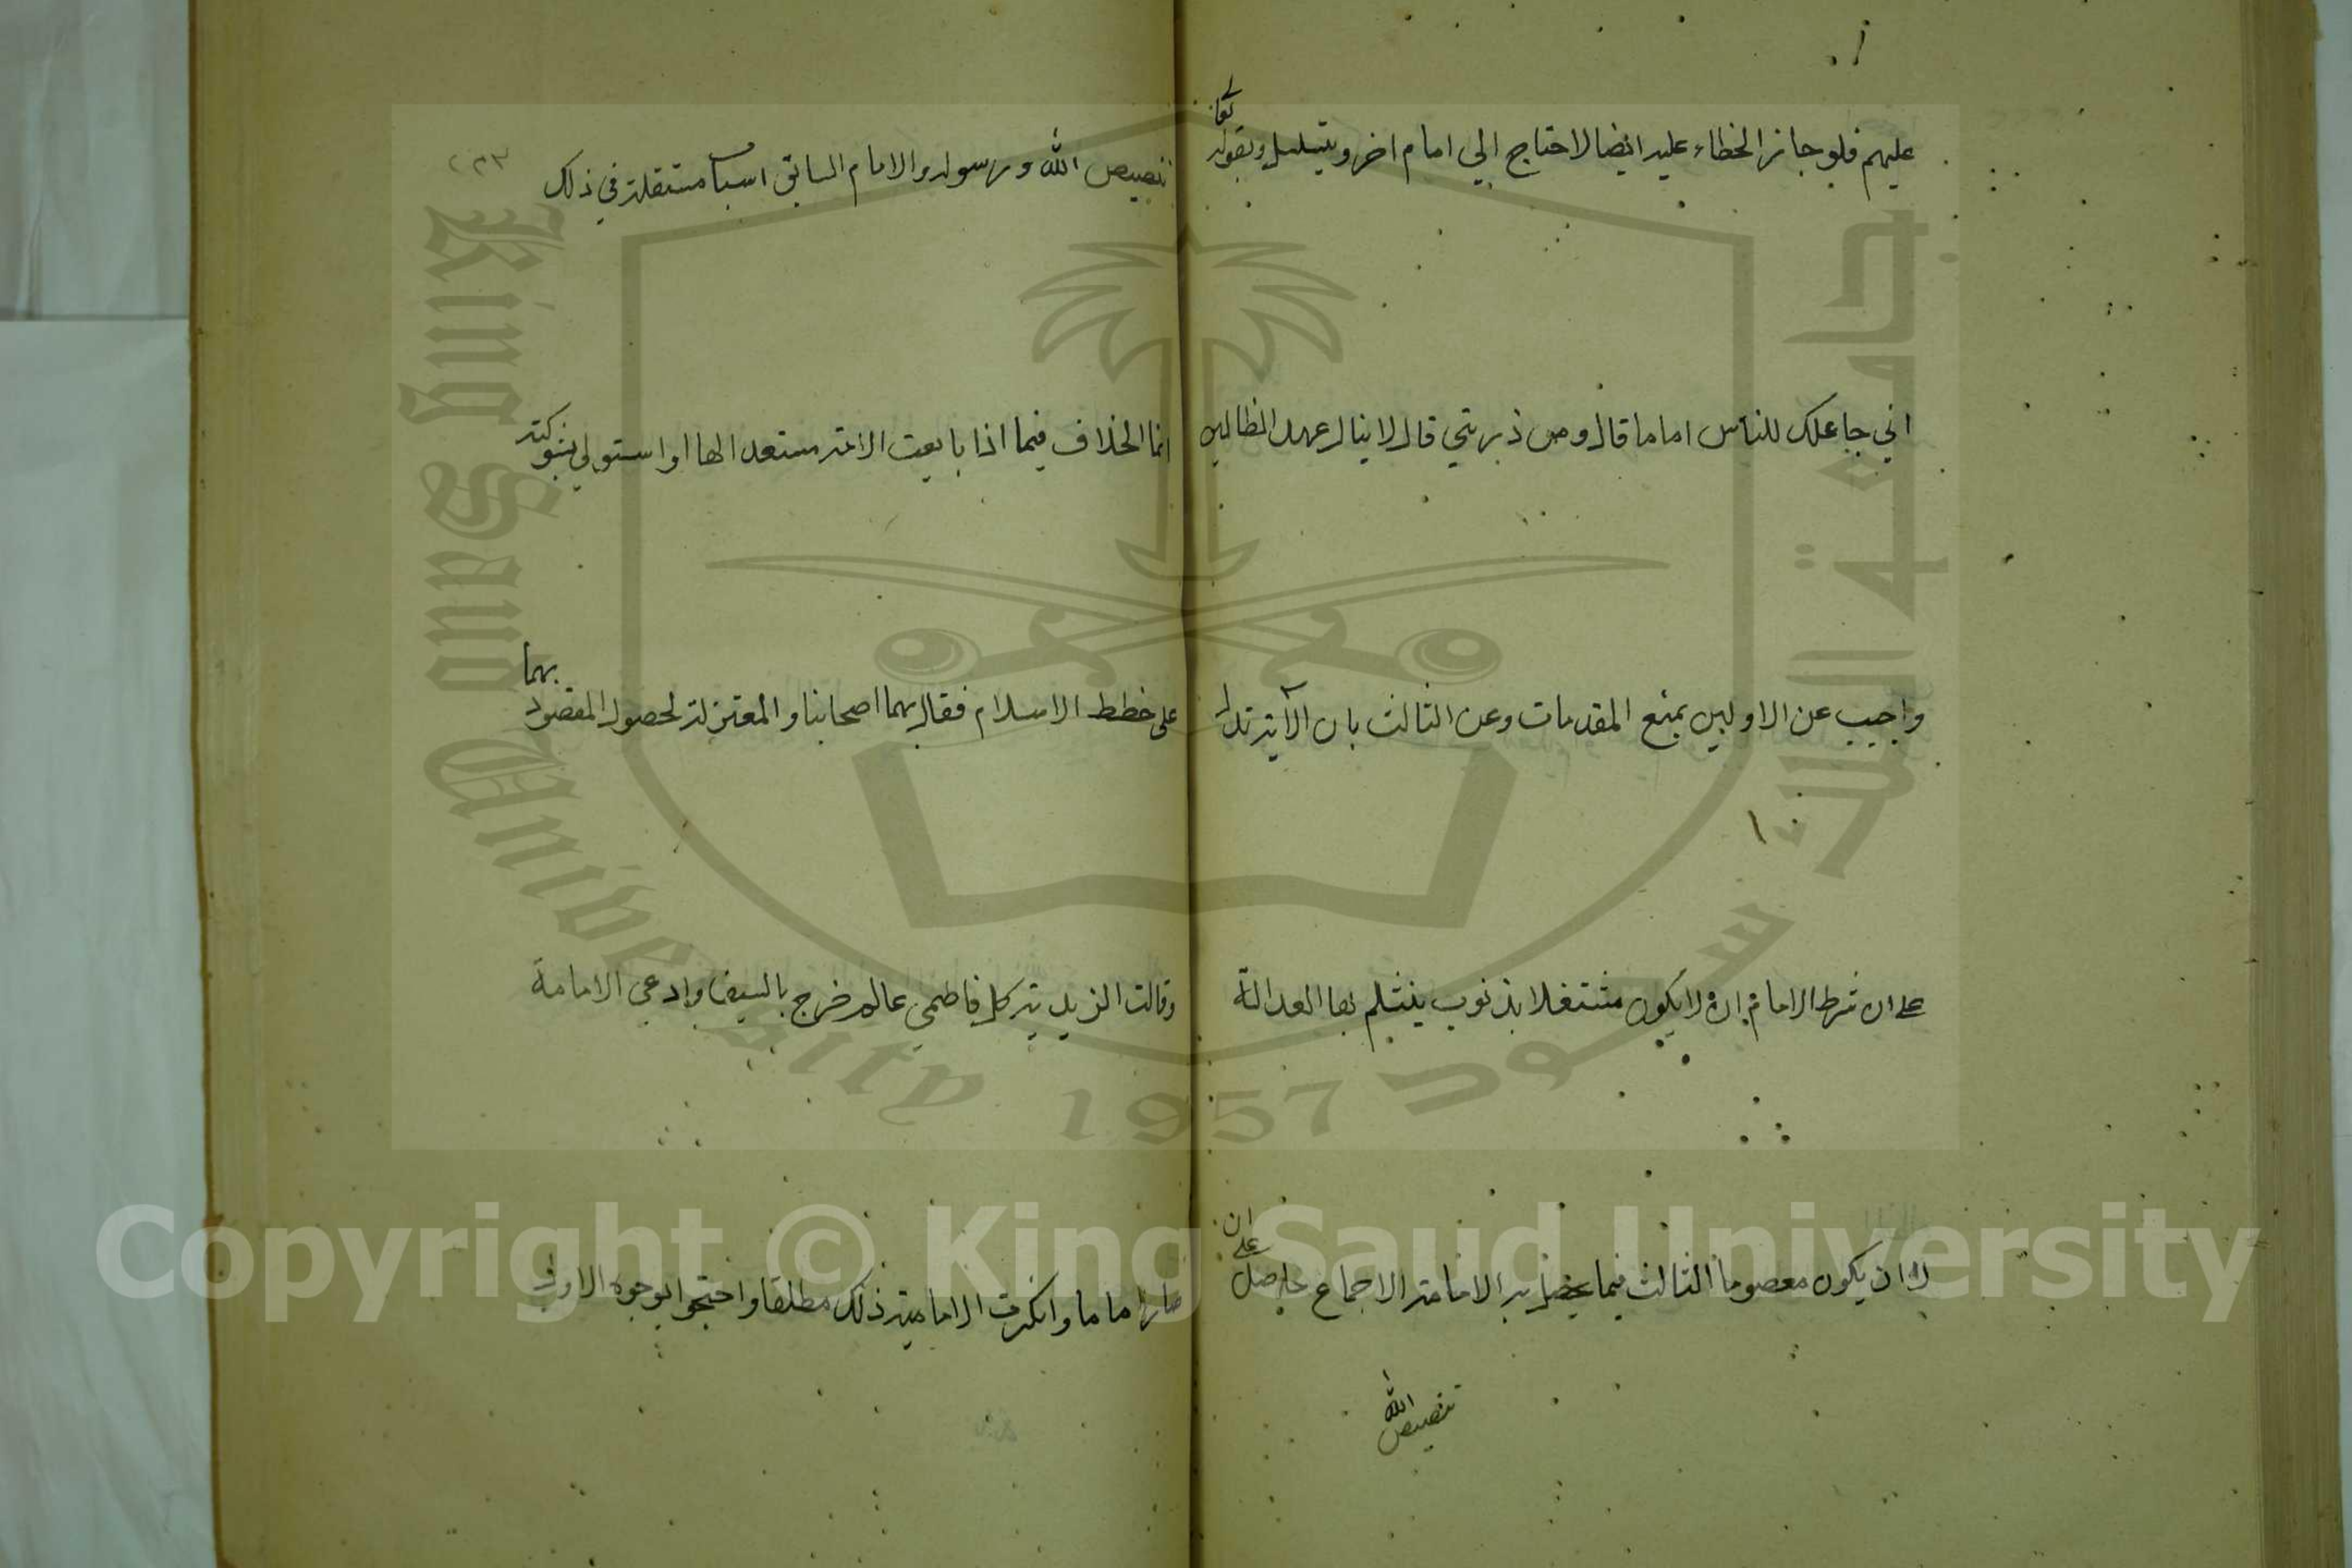 عليهم فلو جاز الخطاء عليه ايضا لاحتاج الي امام اخر ويتسلسل وبقوله تعا
اني جاعلك للناس اماما قال ومن ذريتي قال لا ينال عهد الظالمين
واجيب عن الاولين بمنع المقدمات وعن الثالث بان الآية تدل
على ان شرط الامام ان لا يكون مشتغلا بذنوب ينثلم بها العدالة
لا ان يكون معصوما الثالث فيما يحصل به الامامة الاجماع حاصل على ان
تنصيص الله
تنصيص الله ورسوله والامام السابق اسبا مستقلة في ذلك
انما الخلاف فيما اذا بايعت الامة مستعدا لها او استولي بشوكته
على خطط الاسلام فقال بهما اصحابنا والمعتزلة لحصول المقصود بهما
وقالت الزيدية كل فاطمي عالم خرج بالسيف وادعي الامامة
صار اماما وانكرت الامامية ذلك مطلقا واحتجوا بوجوه الاول
King Saud University 1957
جامعة الملك سعود
Copyright © King Saud University